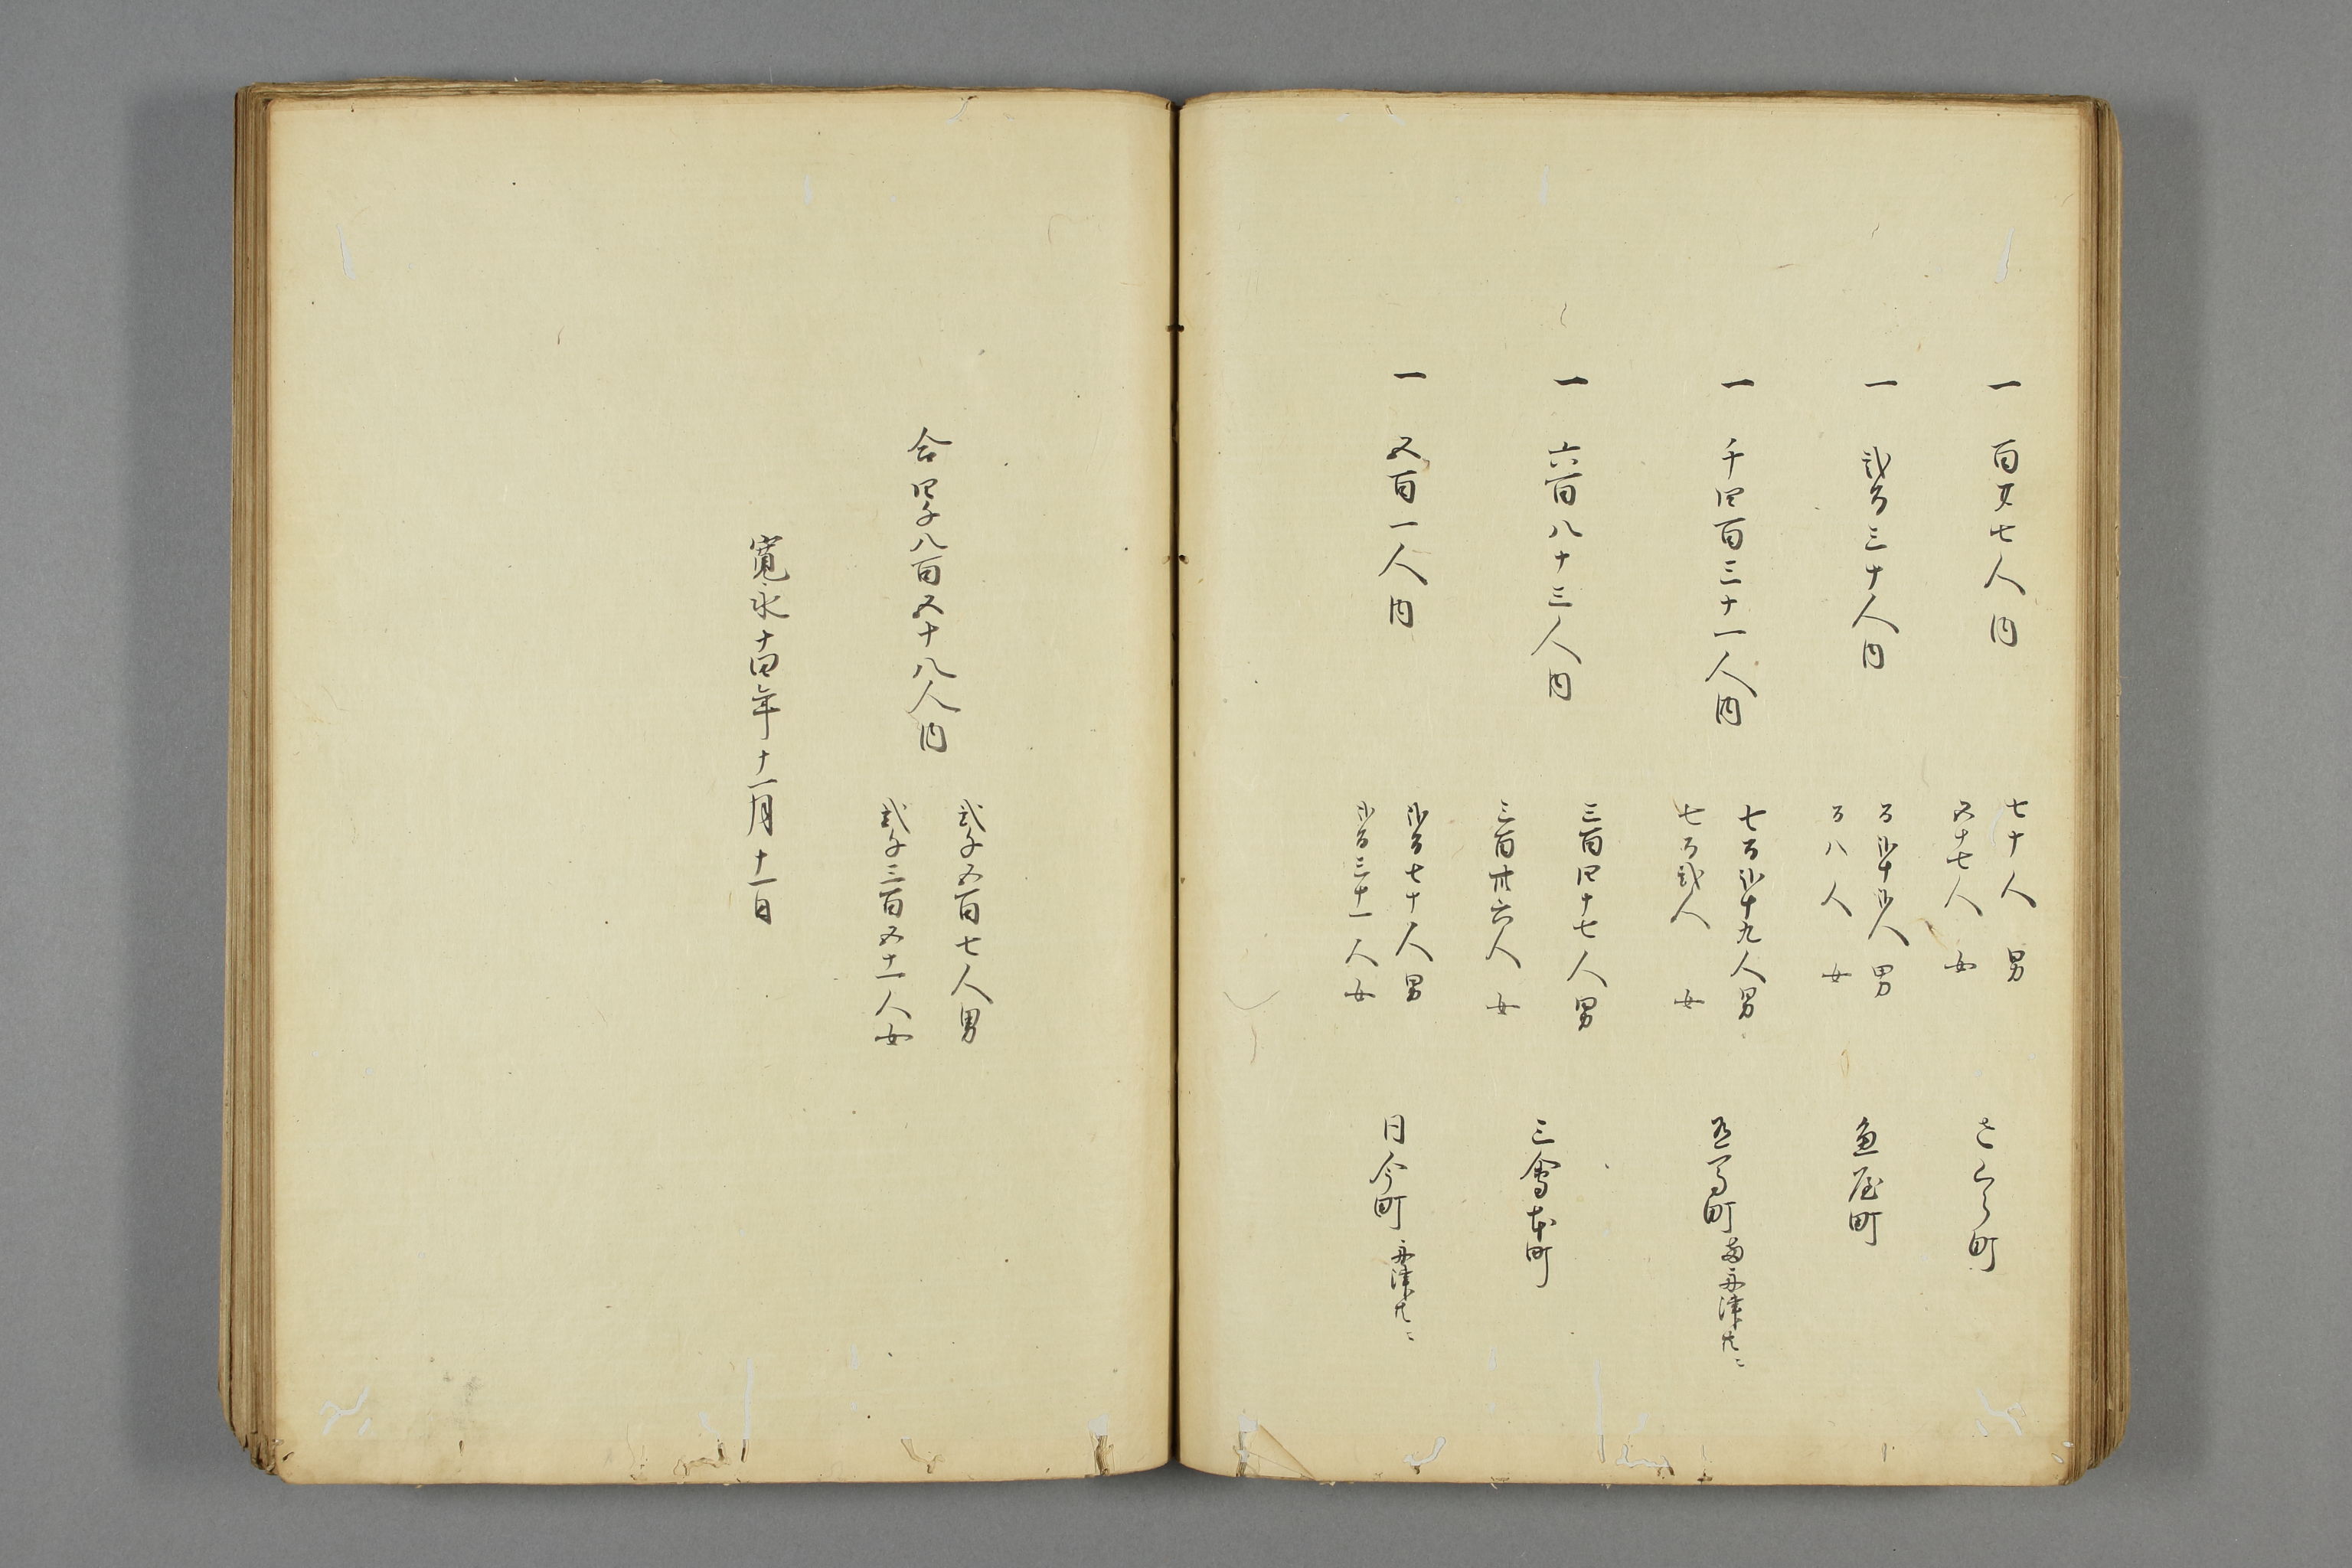 一 百廿七人内
七十人 男
五十七人 女
さくら町
一 弐百三十人内
百弐十弐人 男
百八人 女
魚屋町
一 千四百三十一人内
七百弐十九人男
七百弐人 女
有馬町両舟津共ニ
一 六百八十三人内
三百四十七人男
三百卅六人 女
三會本町
一 五百一人内
弐百七十人男
弐百三十一人女
同今町舟津共ニ
合四千八百五十八人内
弐千五百七人男
弐千三百五十一人女
寛永十四年十一月十一日